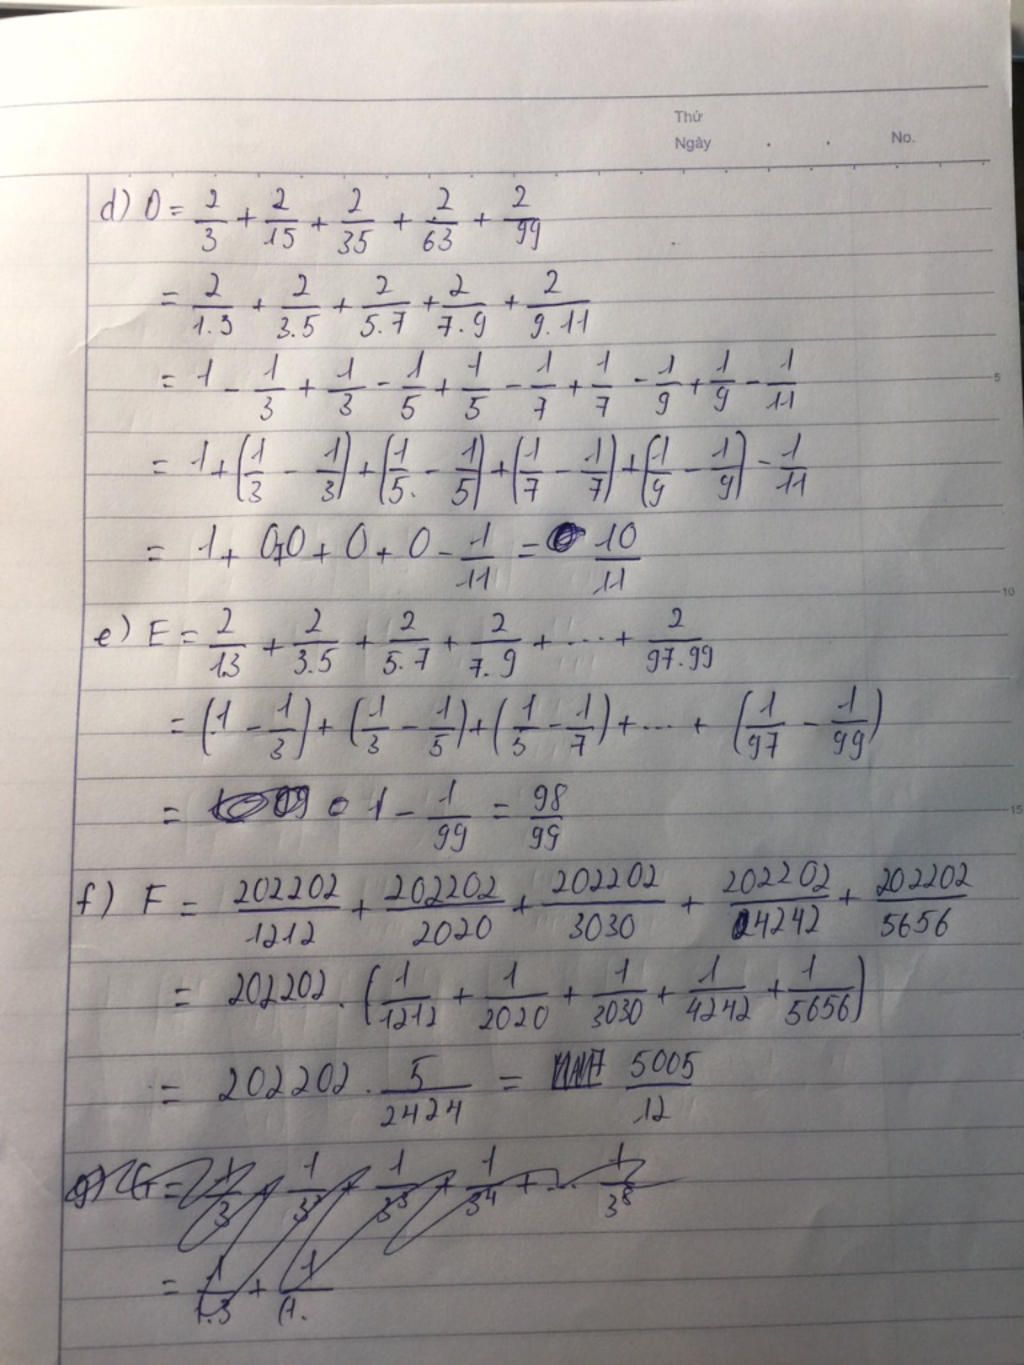 Thứ
Ngày . . No.
d) D = 2/3 + 2/15 + 2/35 + 2/63 + 2/99
= 2/1.3 + 2/3.5 + 2/5.7 + 2/7.9 + 2/9.11
= 1 - 1/3 + 1/3 - 1/5 + 1/5 - 1/7 + 1/7 - 1/9 + 1/9 - 1/11
5
= 1 + (1/3 - 1/3) + (1/5 - 1/5) + (1/7 - 1/7) + (1/9 - 1/9) - 1/11
= 1 + 0 + 0 + 0 + 0 - 1/11 = 10/11
10
e) E = 2/1.3 + 2/3.5 + 2/5.7 + 2/7.9 + ... + 2/97.99
= (1 - 1/3) + (1/3 - 1/5) + (1/5 - 1/7) + ... + (1/97 - 1/99)
= 1 - 1/99 = 98/99
15
f) F = 202202/1212 + 202202/2020 + 202202/3030 + 202202/4242 + 202202/5656
= 202202 . (1/1212 + 1/2020 + 1/3030 + 1/4242 + 1/5656)
= 202202 . 5/2424 = 5005/12
g) G = 1/3 + 1/3² + 1/3³ + 1/3⁴ + ... 1/3⁸
= 1/1.3 + 1/(1.